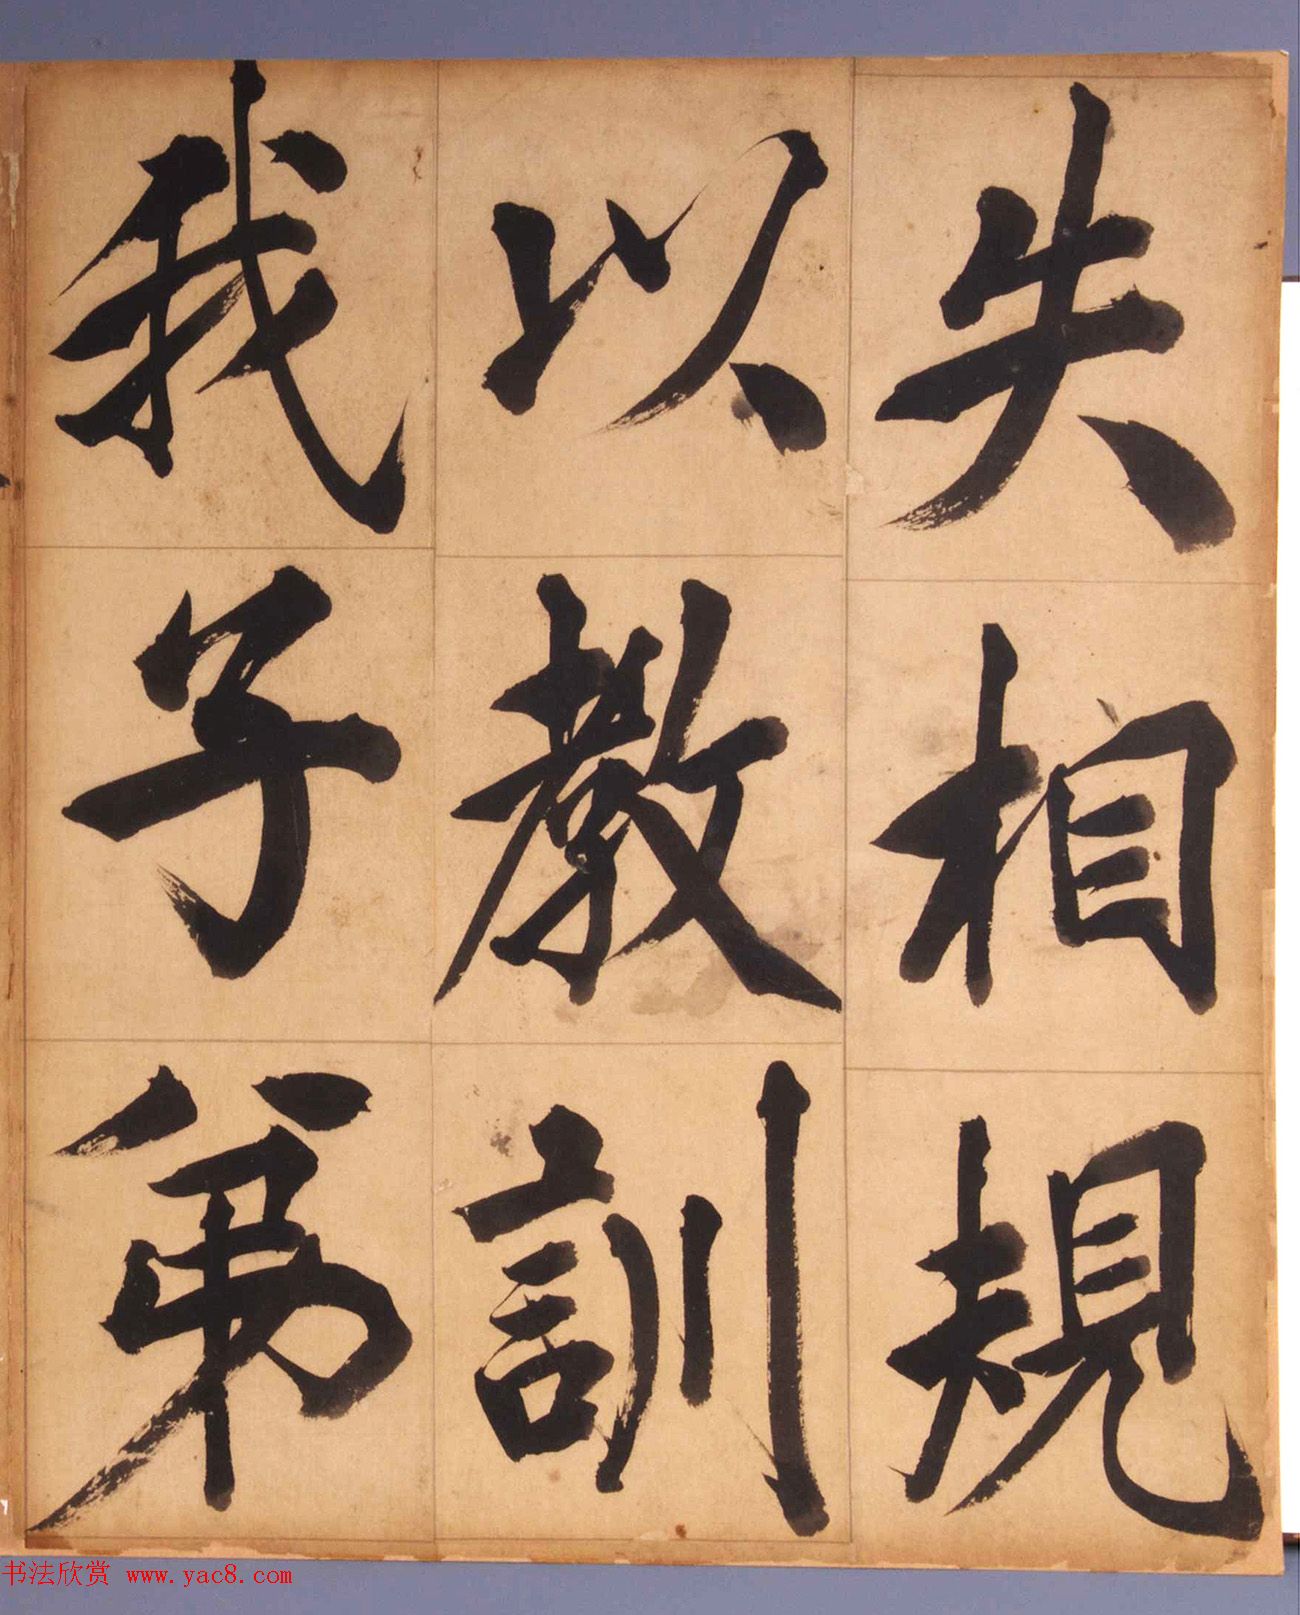 失相規
以教訓
我子弟
书法欣赏 www.yac8.com